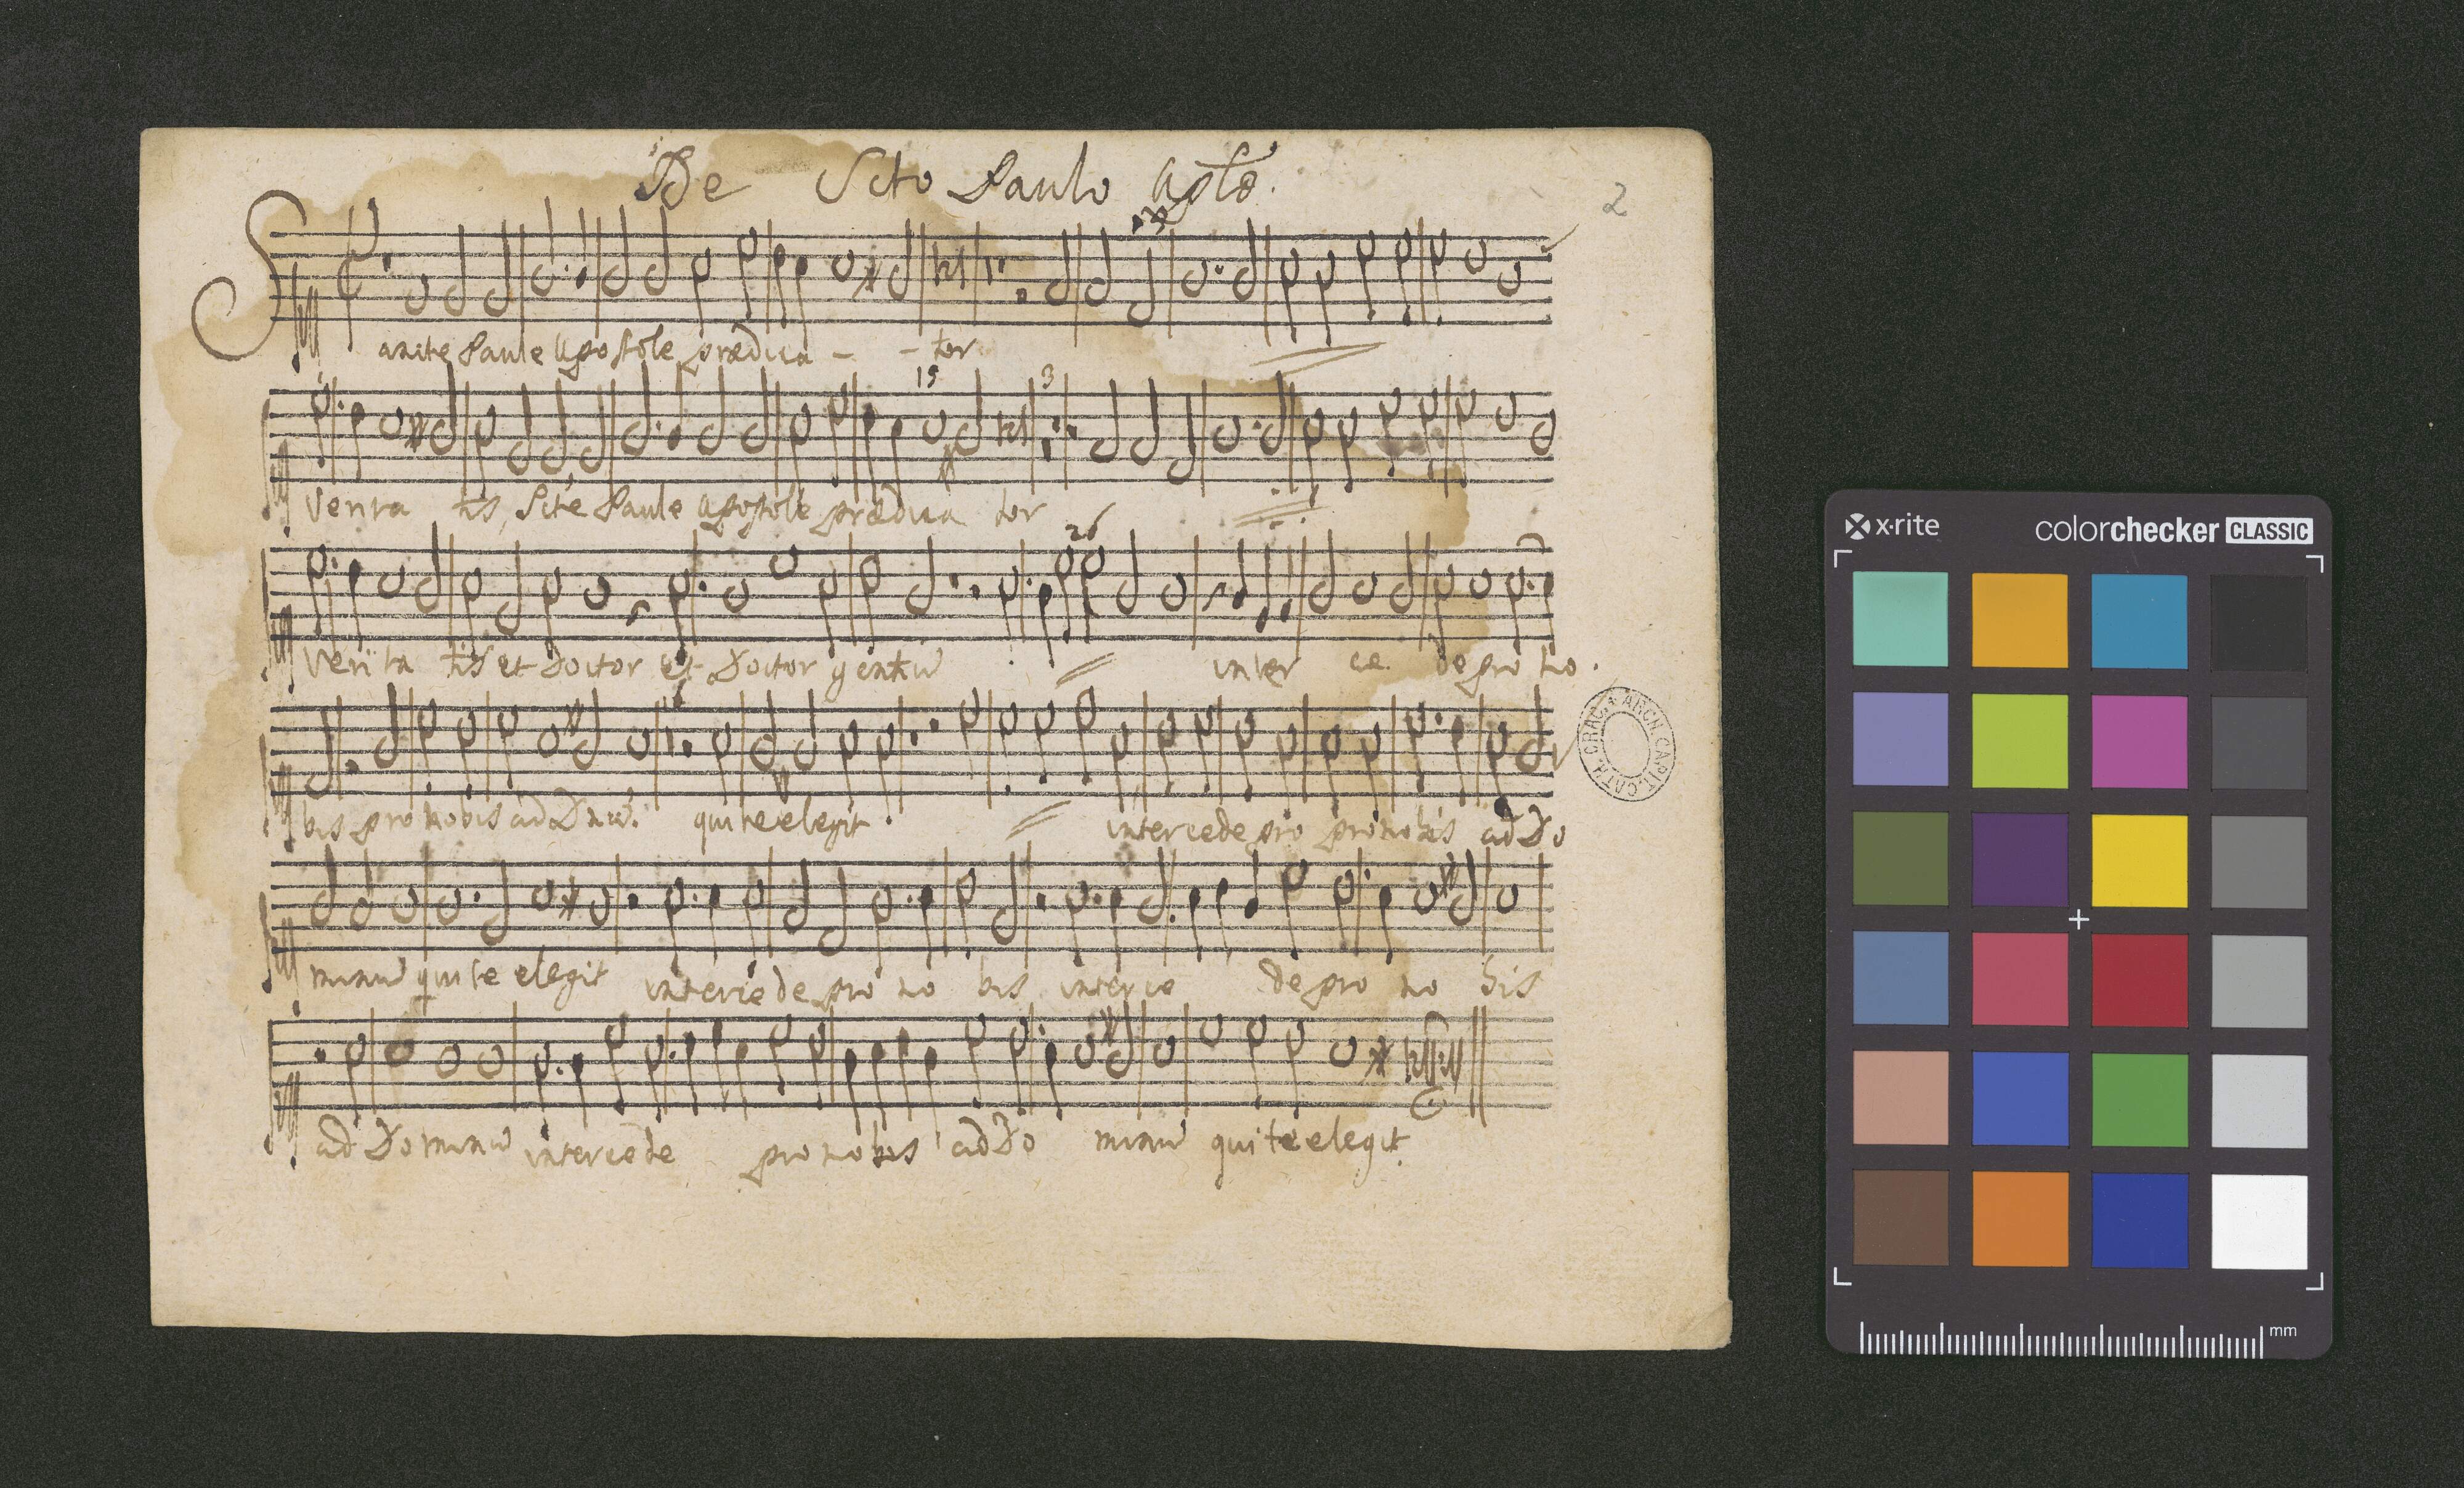 De Scto Paulo Aplo.
2
Sancte Paule Apostole prædica - - tor
15 3
Verita tis, Scte Paule apostole prædica tor
26
Verita tis et Doctor et Doctor gentiũ inter ce de pro no.
bis pro nobis ad Dnũ. qui te elegit intercede pro pro nobis ad Do
minũ qui te elegit intercede pro no bis interce de pro no bis
ad Dominũ intercede pro nobis ad Do minũ qui te elegit.
ARCH. CAPIT. CATH. CRAC.
x-rite
colorchecker CLASSIC
mm